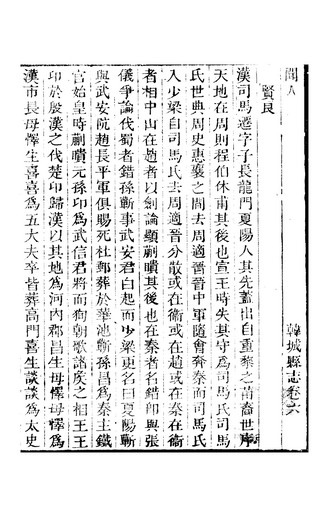 聞人
韓城縣志卷六
賢良
漢司馬遷字子長龍門夏陽人其先蓋出自重黎之苗裔世序
天地在周則程伯休甫其後也宣王時失其守爲司馬氏司馬
氏世典周史惠襄之間去周適晉晉中軍隨會奔秦而司馬氏
入少梁自司馬氏去周適晉分散或在衞或在趙或在秦在衞
者相中山在趙者以劍論顯蒯聵其後也在秦者名錯卽與張
儀爭論伐蜀者錯孫蘄事武安君白起而少梁更名曰夏陽蘄
與武安阬趙長平軍俱賜死杜郵葬於華池蘄孫昌爲秦主鐵
官始皇時蒯聵元孫卬爲武信君將而狥朝歌諸侯之相王王
卬於殷漢之伐楚卬歸漢以其地爲河內郡昌生毋懌毋懌爲
漢市長毋懌生喜喜爲五大夫卒皆葬高門喜生談談爲太史